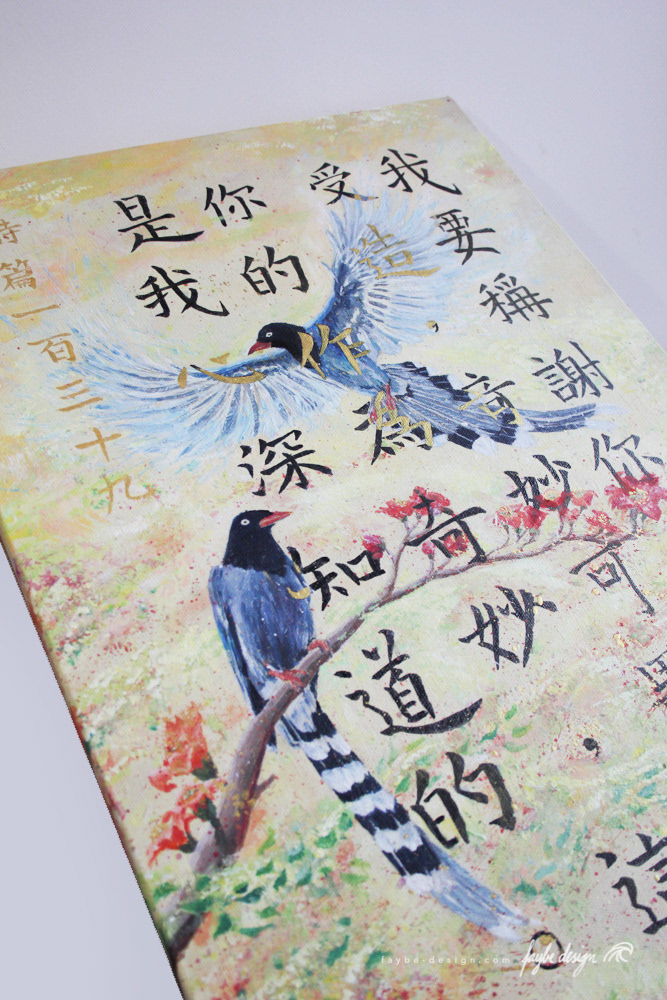 我要稱謝你
受造，奇妙可
你的作為奇妙，這
是我心深知道的。
詩篇一百三十九
faybe-design.com faybe design